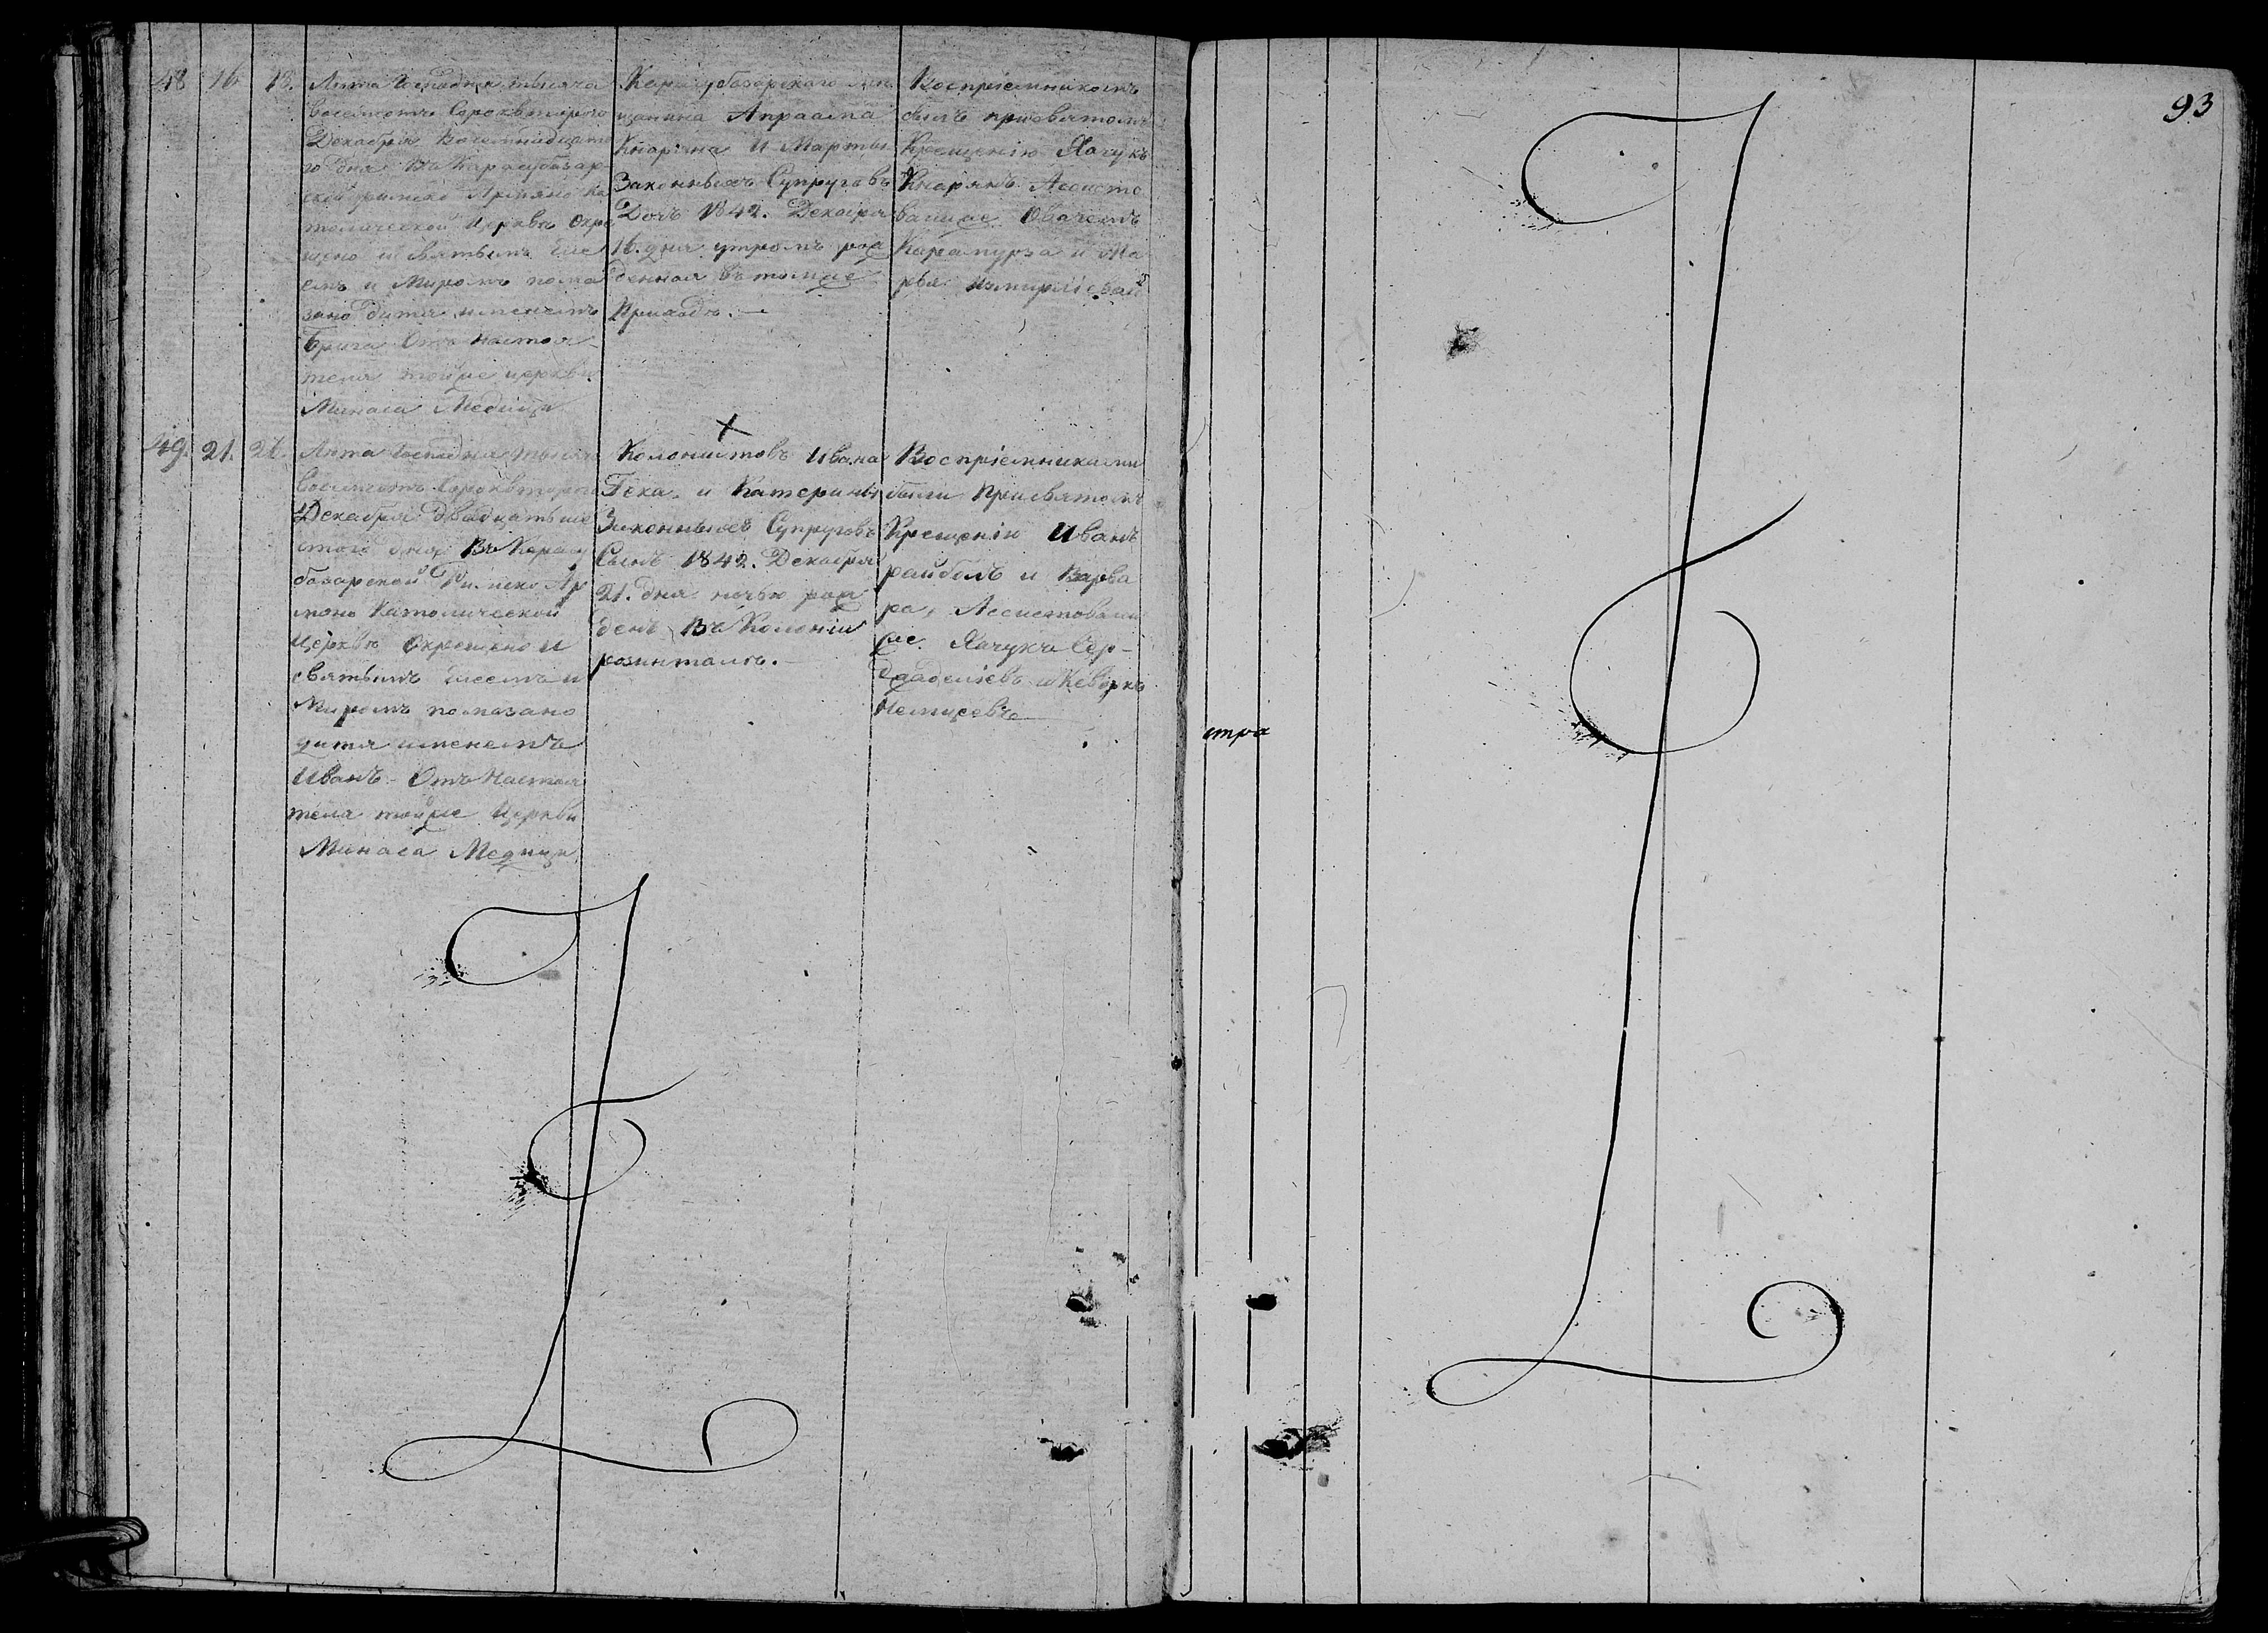 48 16 18. Лѣта Господня тысяча
восемьсотъ Сорокъ второго
Декабря Восемнадцато
го дня Въ Карасубазар-
ской римско Армяно Ка
толической Церквѣ Окре
щено и Святымъ Еле
емъ и Миромъ пома
зано дитя именемъ
Отъ Настоя
теля тойже церкви
Минаса Медици
Карасубазарскаго мѣ
щанина Апраама
Кнаріяна И Марты
Законныхъ Супруговъ
Дочь 1842. Декабря
16. дня утромъ рож
денная въ томже
Приходѣ.
Воспріемникомъ
былъ присвятомъ
Крещенію Хачукъ
Кнарянъ Ассисто
вавшіе Ованесъ
Карамурза и Ма
рья
49. 21. 26. Лѣта Господня тысяча
восемьсотъ Сорокъ второго
Декабря двадцать ше
стого дня Въ Карасу
базарской Римско Ар
мяно Католической
Церквѣ Окрещено и
святымъ Елеемъ и
Миромъ помазано
дитя именемъ
Иванъ Отъ Настоя
теля тойже Церкви
Минаса Медици
Колонистовъ Ивана
Гека и Катерины
Законныхъ Супруговъ
Сынъ 1842. Декабря
21. дня ночью рож
денъ Въ Колоніи
розинталь.
Воспріемниками
были Присвятомъ
Крещенію Иванъ
райболъ и Варва
ра, Ассистовавші
е Хачукъ Сер-
и Кеворкъ
93
стра